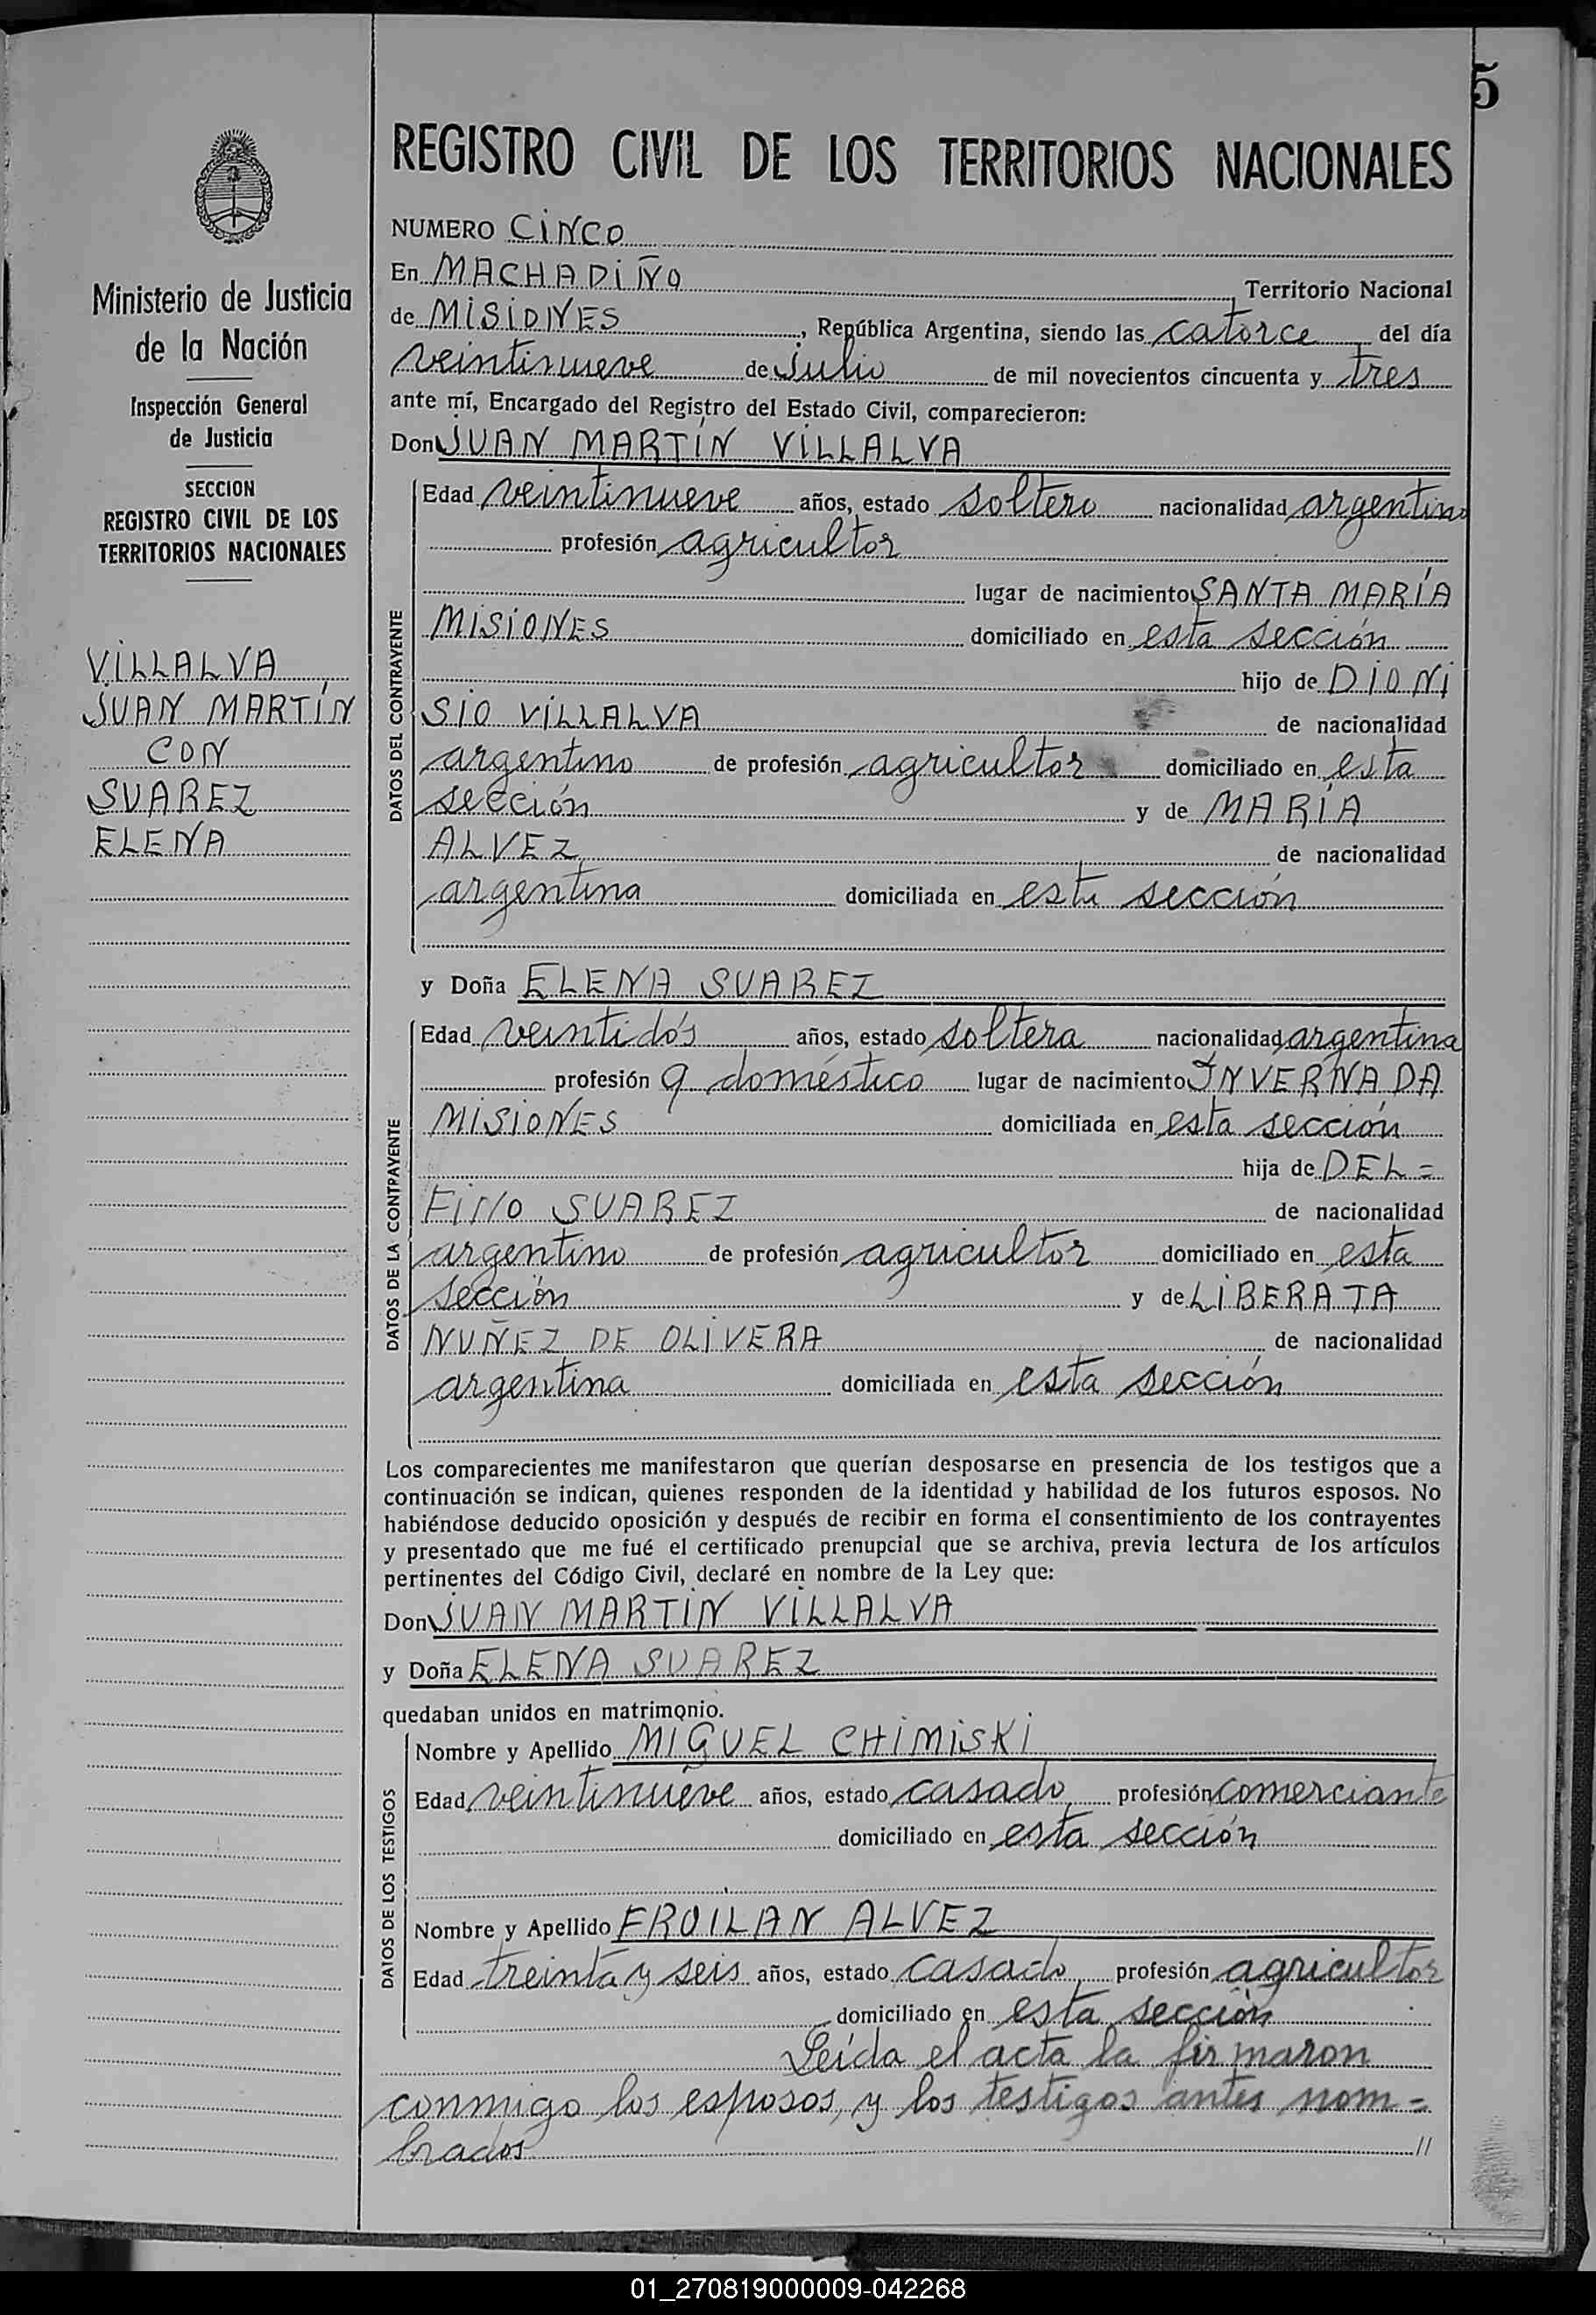 5
REGISTRO CIVIL DE LOS TERRITORIOS NACIONALES
Ministerio de Justicia
de la Nación
Inspección General
de Justicia
SECCION
REGISTRO CIVIL DE LOS
TERRITORIOS NACIONALES
VILLALVA
JUAN MARTÍN
CON
SUAREZ
ELENA
NUMERO CINCO
En MACHADIÑO Territorio Nacional
de MISIONES, República Argentina, siendo las catorce del día
veintinueve de Julio de mil novecientos cincuenta y tres
ante mí, Encargado del Registro del Estado Civil, comparecieron:
Don JUAN MARTÍN VILLALVA
DATOS DEL CONTRAYENTE
Edad veintinueve años, estado soltero nacionalidad argentino
profesión agricultor
lugar de nacimiento SANTA MARÍA
MISIONES domiciliado en esta sección
hijo de DIONI
SIO VILLALVA de nacionalidad
argentino de profesión agricultor domiciliado en esta
sección y de MARÍA
ALVEZ de nacionalidad
argentina domiciliada en esta sección
y Doña ELENA SUAREZ
DATOS DE LA CONTRAYENTE
Edad veintidós años, estado soltera nacionalidad argentina
profesión q doméstico lugar de nacimiento INVERNADA
MISIONES domiciliada en esta sección
hija de DEL=
FINO SUAREZ de nacionalidad
argentino de profesión agricultor domiciliado en esta
sección y de LIBERATA
NUÑEZ DE OLIVERA de nacionalidad
argentina domiciliada en esta sección
Los comparecientes me manifestaron que querían desposarse en presencia de los testigos que a
continuación se indican, quienes responden de la identidad y habilidad de los futuros esposos. No
habiéndose deducido oposición y después de recibir en forma el consentimiento de los contrayentes
y presentado que me fué el certificado prenupcial que se archiva, previa lectura de los artículos
pertinentes del Código Civil, declaré en nombre de la Ley que:
Don JUAN MARTÍN VILLALVA
y Doña ELENA SUAREZ
quedaban unidos en matrimonio.
DATOS DE LOS TESTIGOS
Nombre y Apellido MIGUEL CHIMISKI
Edad veintinueve años, estado casado, profesión comerciante
domiciliado en esta sección
Nombre y Apellido FROILAN ALVEZ
Edad treinta y seis años, estado casado, profesión agricultor
domiciliado en esta sección
Leída el acta la firmaron
conmigo los esposos, y los testigos antes nom=
brados //
01_270819000009-042268